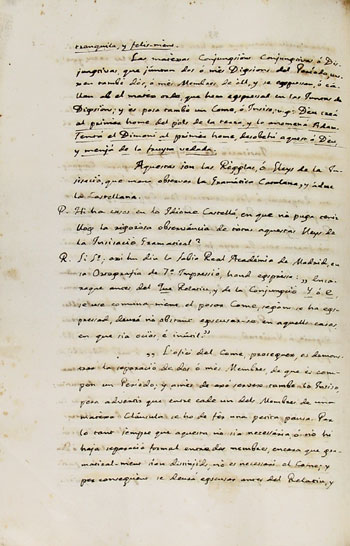 tranquila, y felis-ment.
Las matexas Conjunsións Conjunsivas ó Dis-
juntivas, que juntan dos ó més Digsións del Período,
xan també dos, ó més Membres de ell, y se
llan ab el matex orde, que hem egspressad en las Juntas de
Digsións; y és posa també un Come, ó Insiso; v. g. Deu creá
al primér home del pols de la terra, y lo anomená Adan.
Tentá el Dimoni al primér home, desobehí aquest ó Déu,
y menjá de la fruyta vedada.
Aquestas son las Régglas, ó Lleys de la In-
sisació, que manu observar la Gramática Catalana, y adue
la Castellana.
P. Hi ha casos en la Idióme Castellá, en que nó puga tenir
lloch la rigorosa observánsia de totas aquestas Lleys de
la Insisació Gramatical?
R. Sí: Sí: axí hu diu la Sábia Real Académia de Madrid, en
sa Ortografia de 7.ª Impressió, hond egspressa: „
que antes del Jue Relatiu, y de la Conjunció Y ó E,
se usa comuna-ment el posar Come, segóns se ha egs-
pressad, deurá nó obstant egscusar-se en aquells casos
en que sia ociós ó inútil."
„ L'ofici del Come, prosseguex, es demons-
trar la separació de dos ó més Membres, de que és com-
pon un Período; y antes de axó servex també lo Insiso
para advertir que entre cade un dels Membres de una
matexa Cláusula se ha de fér una petita pausa. Per
lo tant sempre que aquesta nó sia necessária ó nó hi
haja separació formal entre dos membres, encara que gra-
matical-ment sian distinjids, nó es necessari el Come; y
per conseqüent se deurá egscusar antes del Relatiu, y